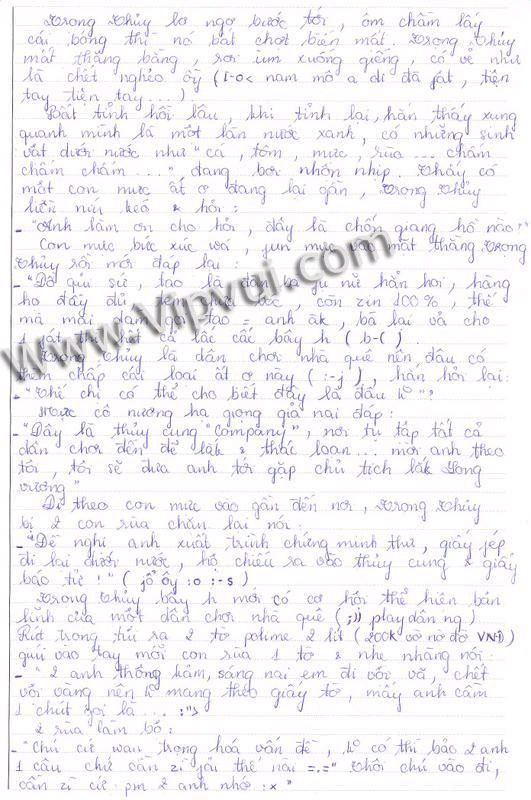 Trọng Thủy lơ ngơ bước tới, ôm chầm lấy
cái bóng thì nó bất chợt biến mất. Trọng Thủy
mất thăng bằng, rơi ùm xuống giếng, có vẻ như
là chết nghẻo òy (!-o< nam mô a di đà fật, tiện
tay tiện tay ...)
Bất tỉnh hồi lâu, khi tỉnh lại, hắn thấy xung
quanh mình là một làn nước xanh, có những sinh
vật dưới nước như "cá, tôm, mực, rùa ... chấm
chấm chấm ...", đang bơi nhộn nhịp. Thấy có
một con mực ất ơ đang lại gần, Trọng Thủy
liền níu kéo & hỏi:
- "Anh làm ơn cho hỏi, đây là chốn giang hồ nào?"
Con mực bức xúc wá, fun mực vào mặt thằng Trọng
Thủy rồi mới đáp lại:
- "Đồ quỉ sứ, tao là đàn bà fụ nữ hẳn hoi, hàng
họ đầy đủ, còn zin 100%, thế
mà mài dám gọi tao = anh àk, bà lại vả cho
1 fát thì lắc cắc bây h (b-( ).
Trọng Thủy là dân chơi nhà quê nên đâu có
thèm chấp cái loại ất ơ này (:-j), hắn hỏi lại:
- "Thế chị có thể cho biết đây là đâu k°"?
Mực cô nương hạ giọng giả nai đáp:
- "Đây là thủy cung "Company", nơi tụ tập tất cả
dân chơi đến để lắk & thác loạn... mời anh theo
tôi, tôi sẽ đưa anh tới gặp chủ tịch lắk Long
vương"
Đi theo con mực vào gần đến nơi, Trọng Thủy
bị 2 con rùa chặn lại nói:
- "Đề nghị anh xuất trình chứng minh thư, giấy fép
đi lại dưới nước, hộ chiếu ra vào thủy cung & giấy
báo tử!" (:o :-s)
Trọng Thủy bây h mới có cơ hội thể hiện bản
lĩnh của một dân chơi nhà quê (;)) play dân ng)
Rút trong túi ra 2 tờ polime 2 lít (200k VNĐ)
gúi vào tay mỗi con rùa 1 tờ & nhẹ nhàng nói:
- "2 anh thông kảm, sáng nai em đi vội vã, chết
vội vàng nên k° mang theo giấy tờ, mấy anh cầm
1 chút gọi là ... :">
2 rùa làm bộ:
- "Chú cứ wan trọng hoá vấn đề, k° có thì bảo 2 anh
1 câu chứ cần zì fải thế nài =.=" Thôi chú vào đi,
cần zì cứ pm 2 anh nhớ :x"
www.Vipvui.com